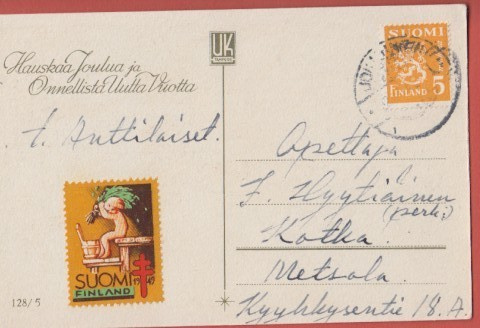 UK
TAMPERE
Hauskaa Joulua ja
Onnellista Uutta Vuotta
t. Anttilaiset.
SUOMI
FINLAND
5
JOE
SUOMI 1947
FINLAND
128/5
Opettaja
F. Hyytiäinen
(perh.)
Kotka.
Metsola.
Kyyhkysentie 18. A.